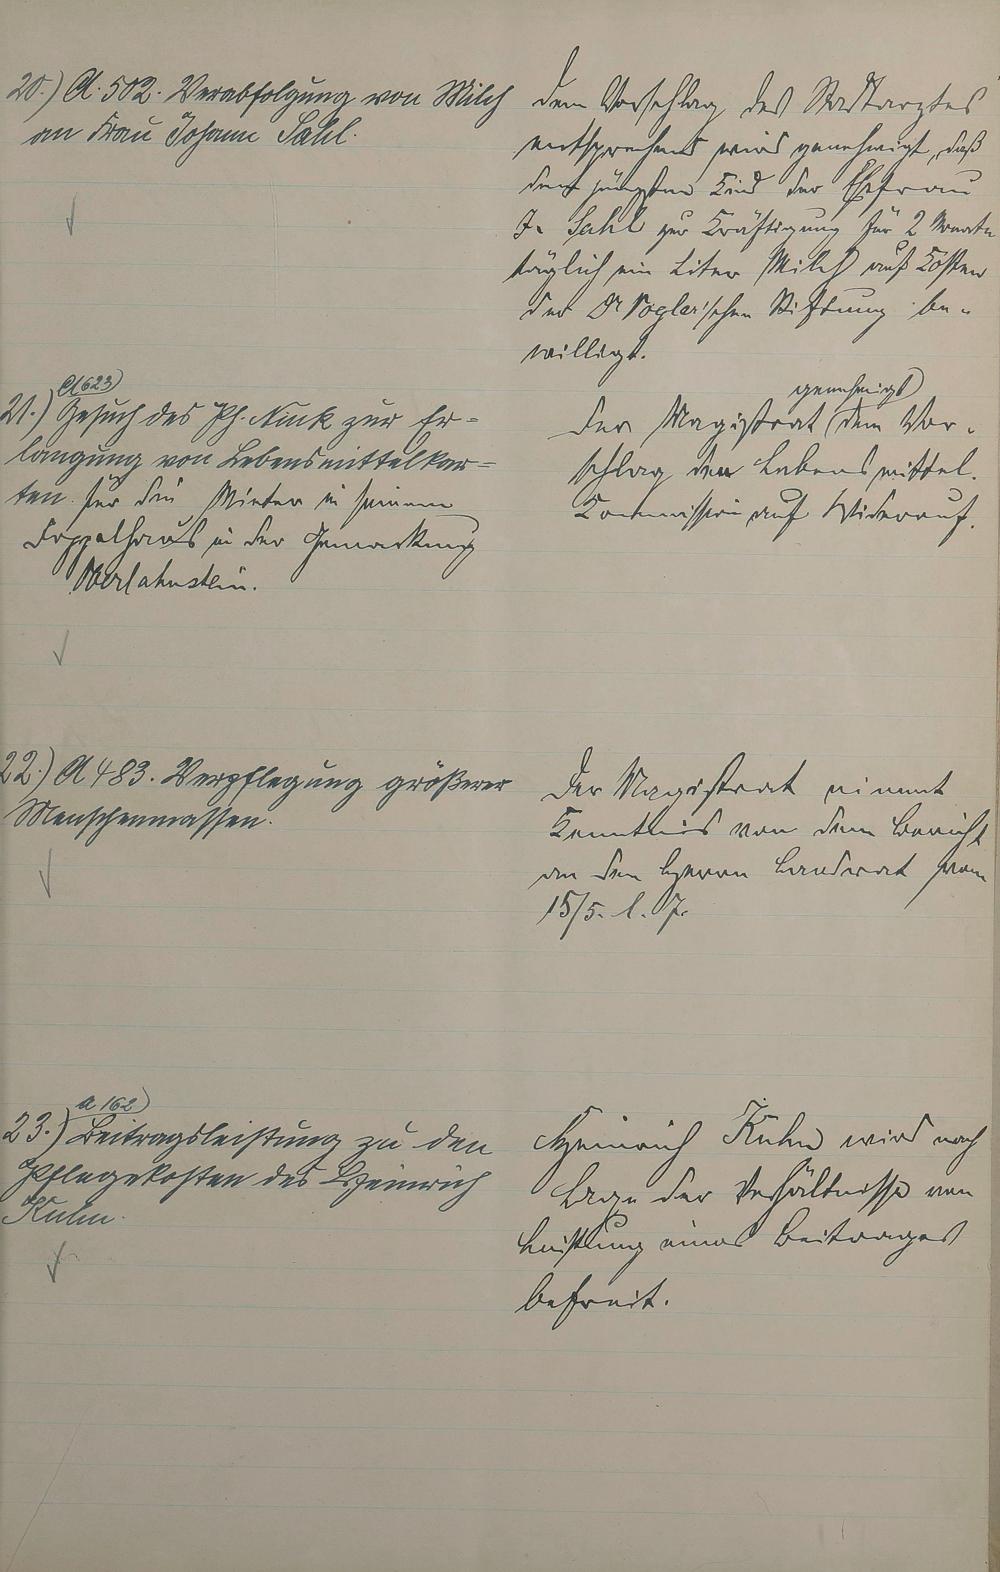 20.) A. 502. Verabfolgung von Milch
an Frau Johann Sahl.
Dem Vorschlag des Stadtarztes
entsprechend wird genehmigt, daß
dem jüngsten Kind der Ehefrau
J. Sahl zur Kräftigung für 2 Monate
täglich ein Liter Milch auf Kosten
der Dr Vogler'schen Stiftung be-
willigt.
A 623)
21.) Gesuch des Ph. Nink zur Er-
langung von Lebensmittelkar-
ten für die Mieter in seinem
Doppelhaus in der Gemarkung
Oberlahnstein.
genehmigt)
Der Magistrat (dem Vor-
schlag der Lebensmittel-
Kommission auf Widerruf.
22.) A 483. Verpflegung größerer
Menschenmassen.
Der Magistrat nimmt
Kenntnis von dem Bericht
an den Herrn Landrat vom
15/5. l. J.
A 162)
23.) Beitragsleistung zu den
Pflegekosten des Heinrich
Kuhn.
Heinrich Kuhn wird nach
Lage der Verhältnisse von
Leistung eines Beitrages
befreit.